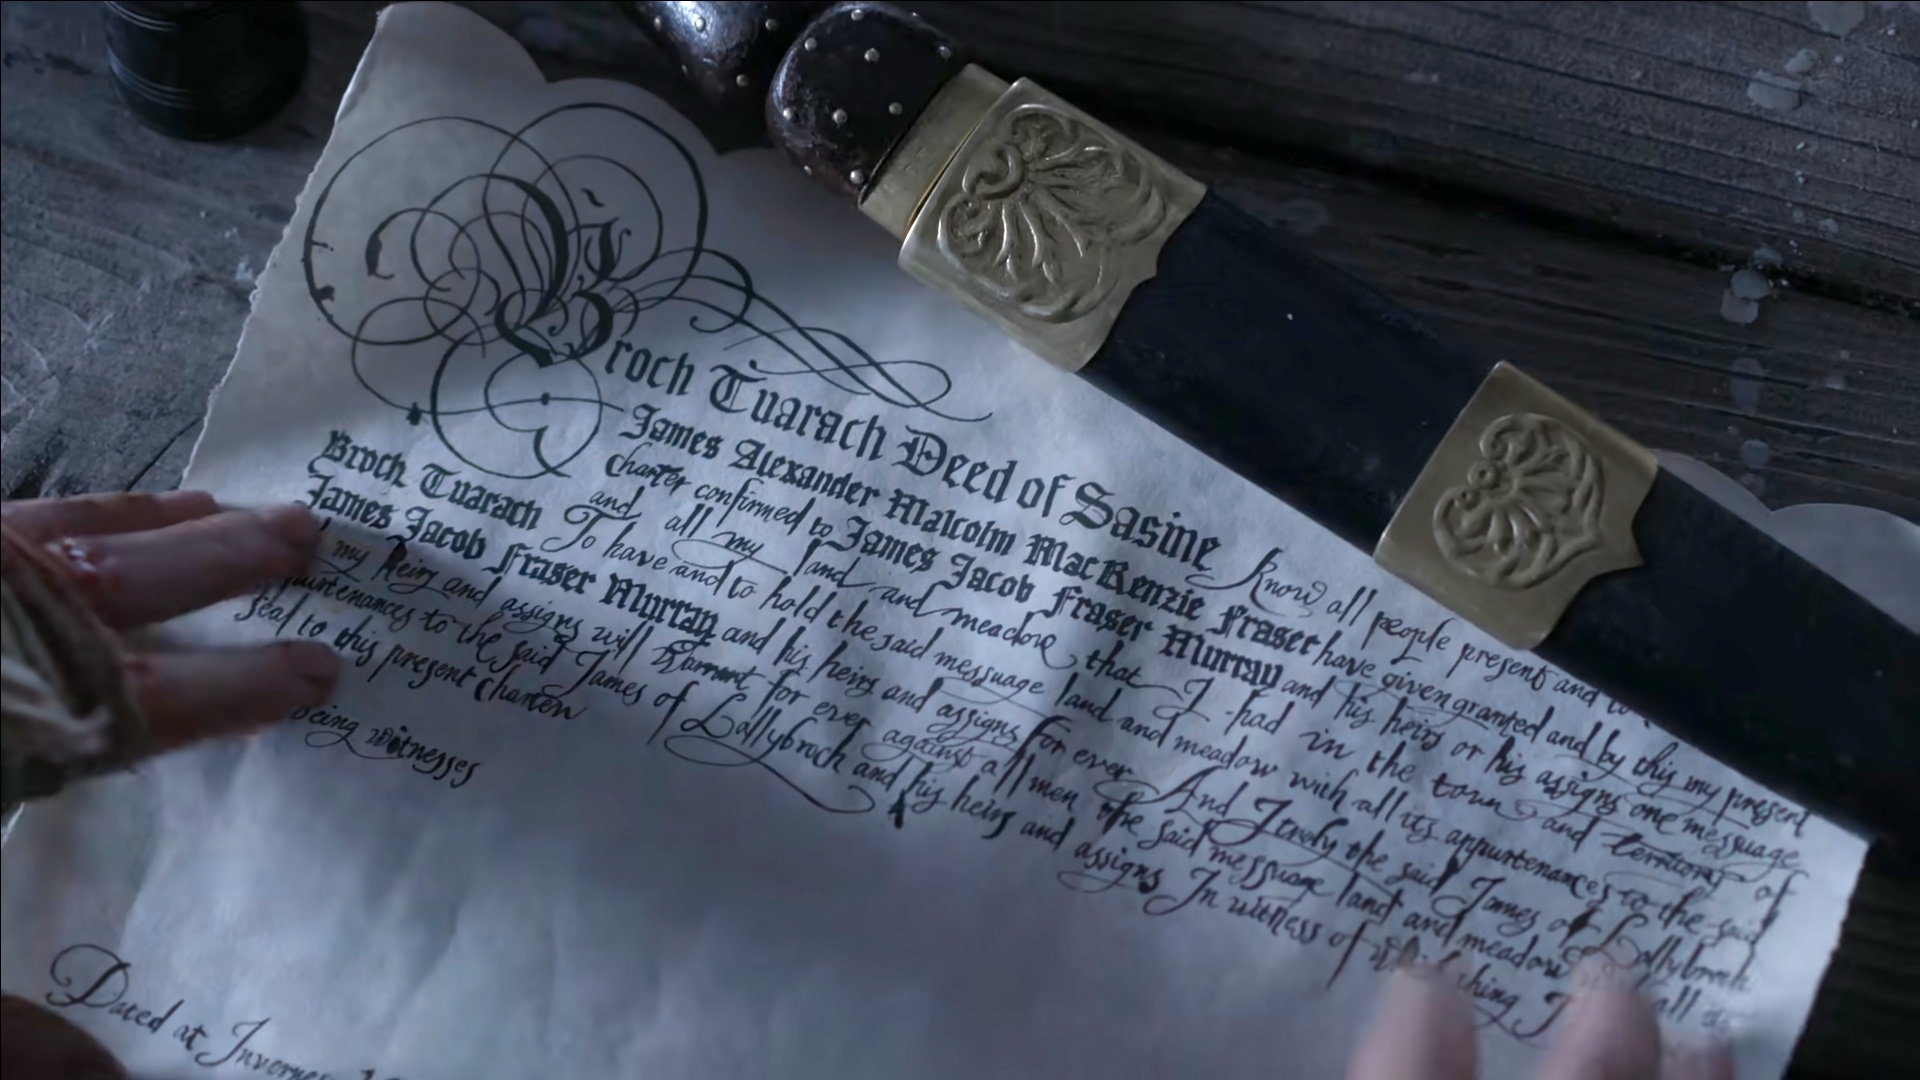 Broch Tuarach Deed of Sasine Know all people present and to
James Alexander Malcolm MacKenzie Fraser have given granted and by this my present
Charter confirmed to James Jacob Fraser Murray and his heirs or his assigns one messuage
and all my land and meadow that I had in the town and territory of
Broch Tuarach To have and to hold the said messuage land and meadow with all its appurtenances to the said
James Jacob Fraser Murray and his heirs and assigns for ever And I truly the said James of Lallybroch
my heirs and assigns will Warrant for ever against all men the said messuage land and meadow all
purtenances to the said James of Lallybroch and his heirs and assigns In witness of thing I
seal to this present Charter
being witnesses
Dated at Inverness